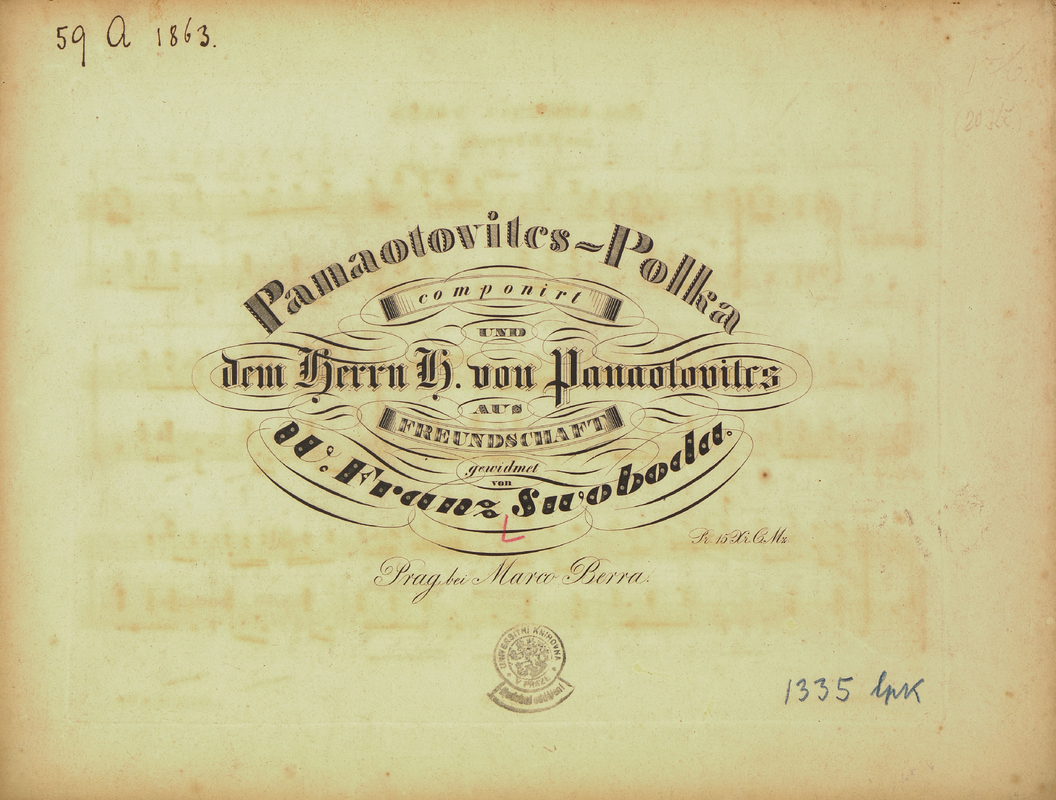 59 A 1863.
Panaotovitcs-Polka
componirt
UND
dem Herrn H. von Panaotovitcs
AUS
FREUNDSCHAFT
gewidmet
von
W. Franz Swoboda.
Pr. 15 Xr. C.Mz
Prag, bei Marco Berra.
UNIVERSITNÍ KNIHOVNA
V PRAZE
Hudební oddělení
1335 lpk